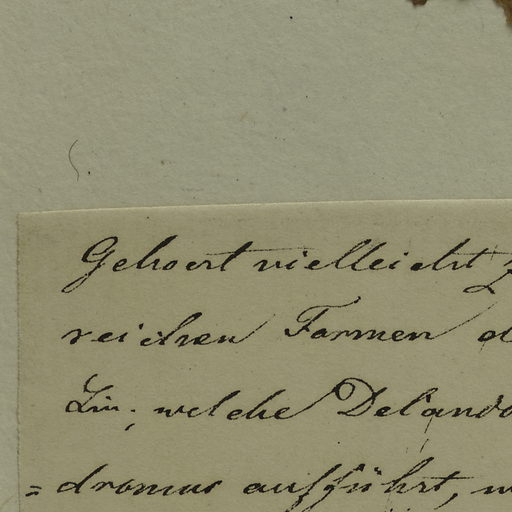 Gehoert vielleicht z
reichen Formen d
Lin; welche Delando
=dromus aufführt, w